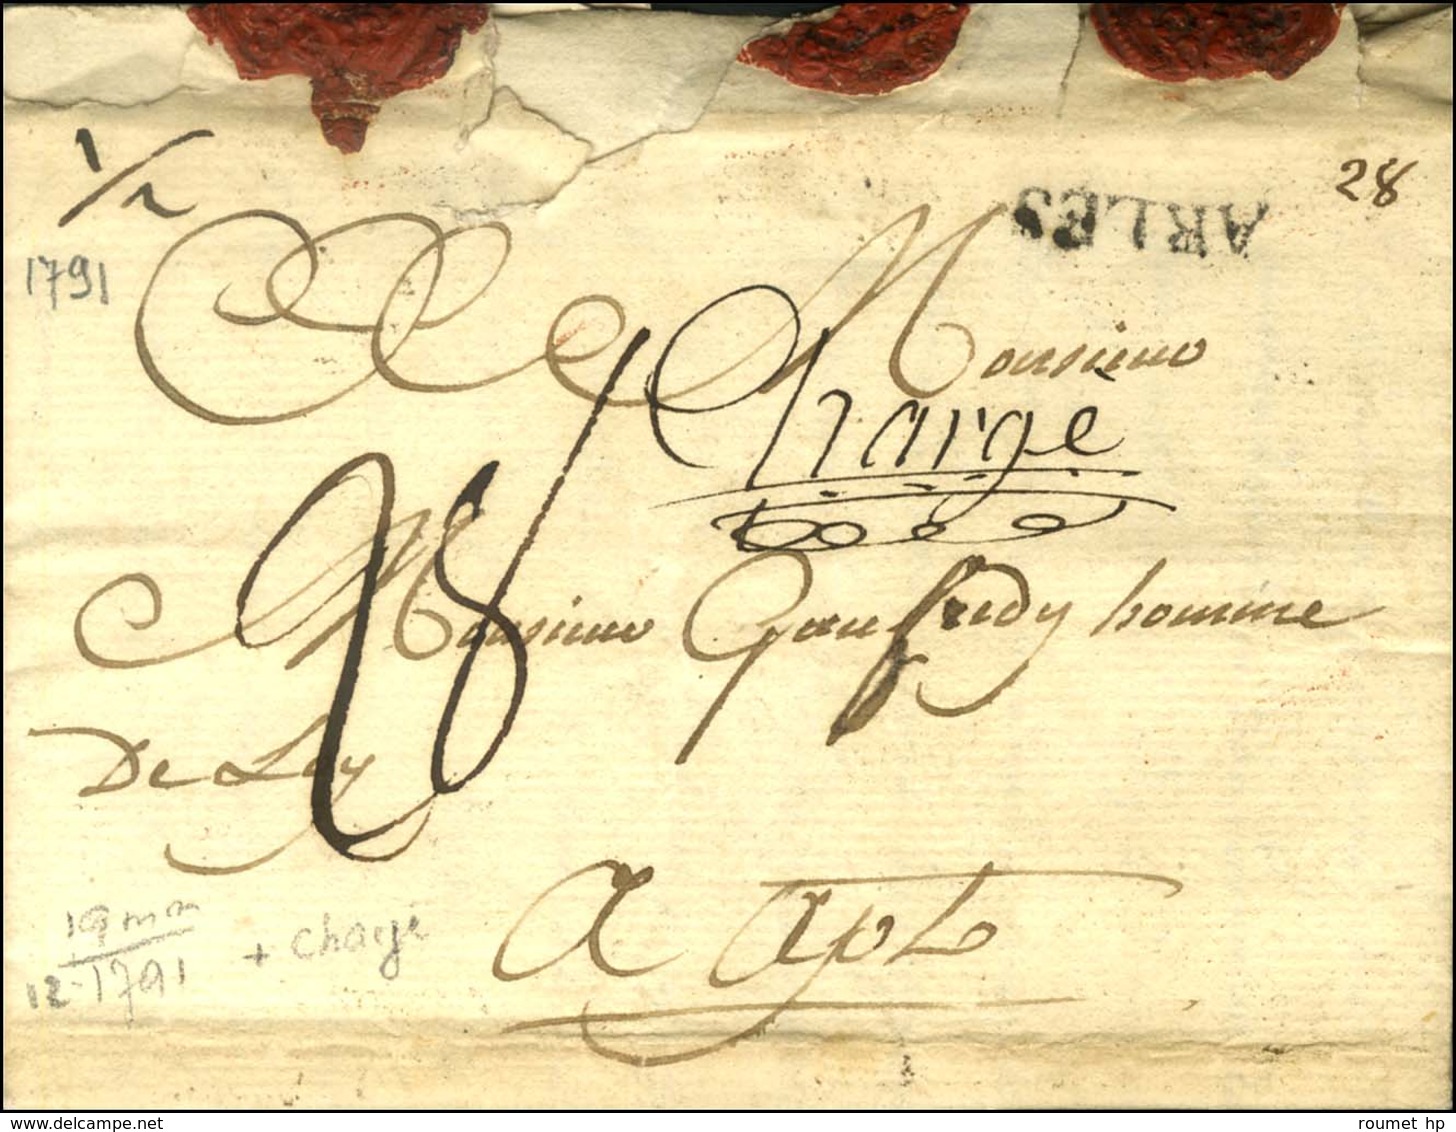 1/2
28
ARLES
1791
Monsieur
Chargé
28
Monsieur Gaufridy homme
De Loy
a apt
19 mm
12-1791
+ chargé
www.delcampe.net
roumet hp